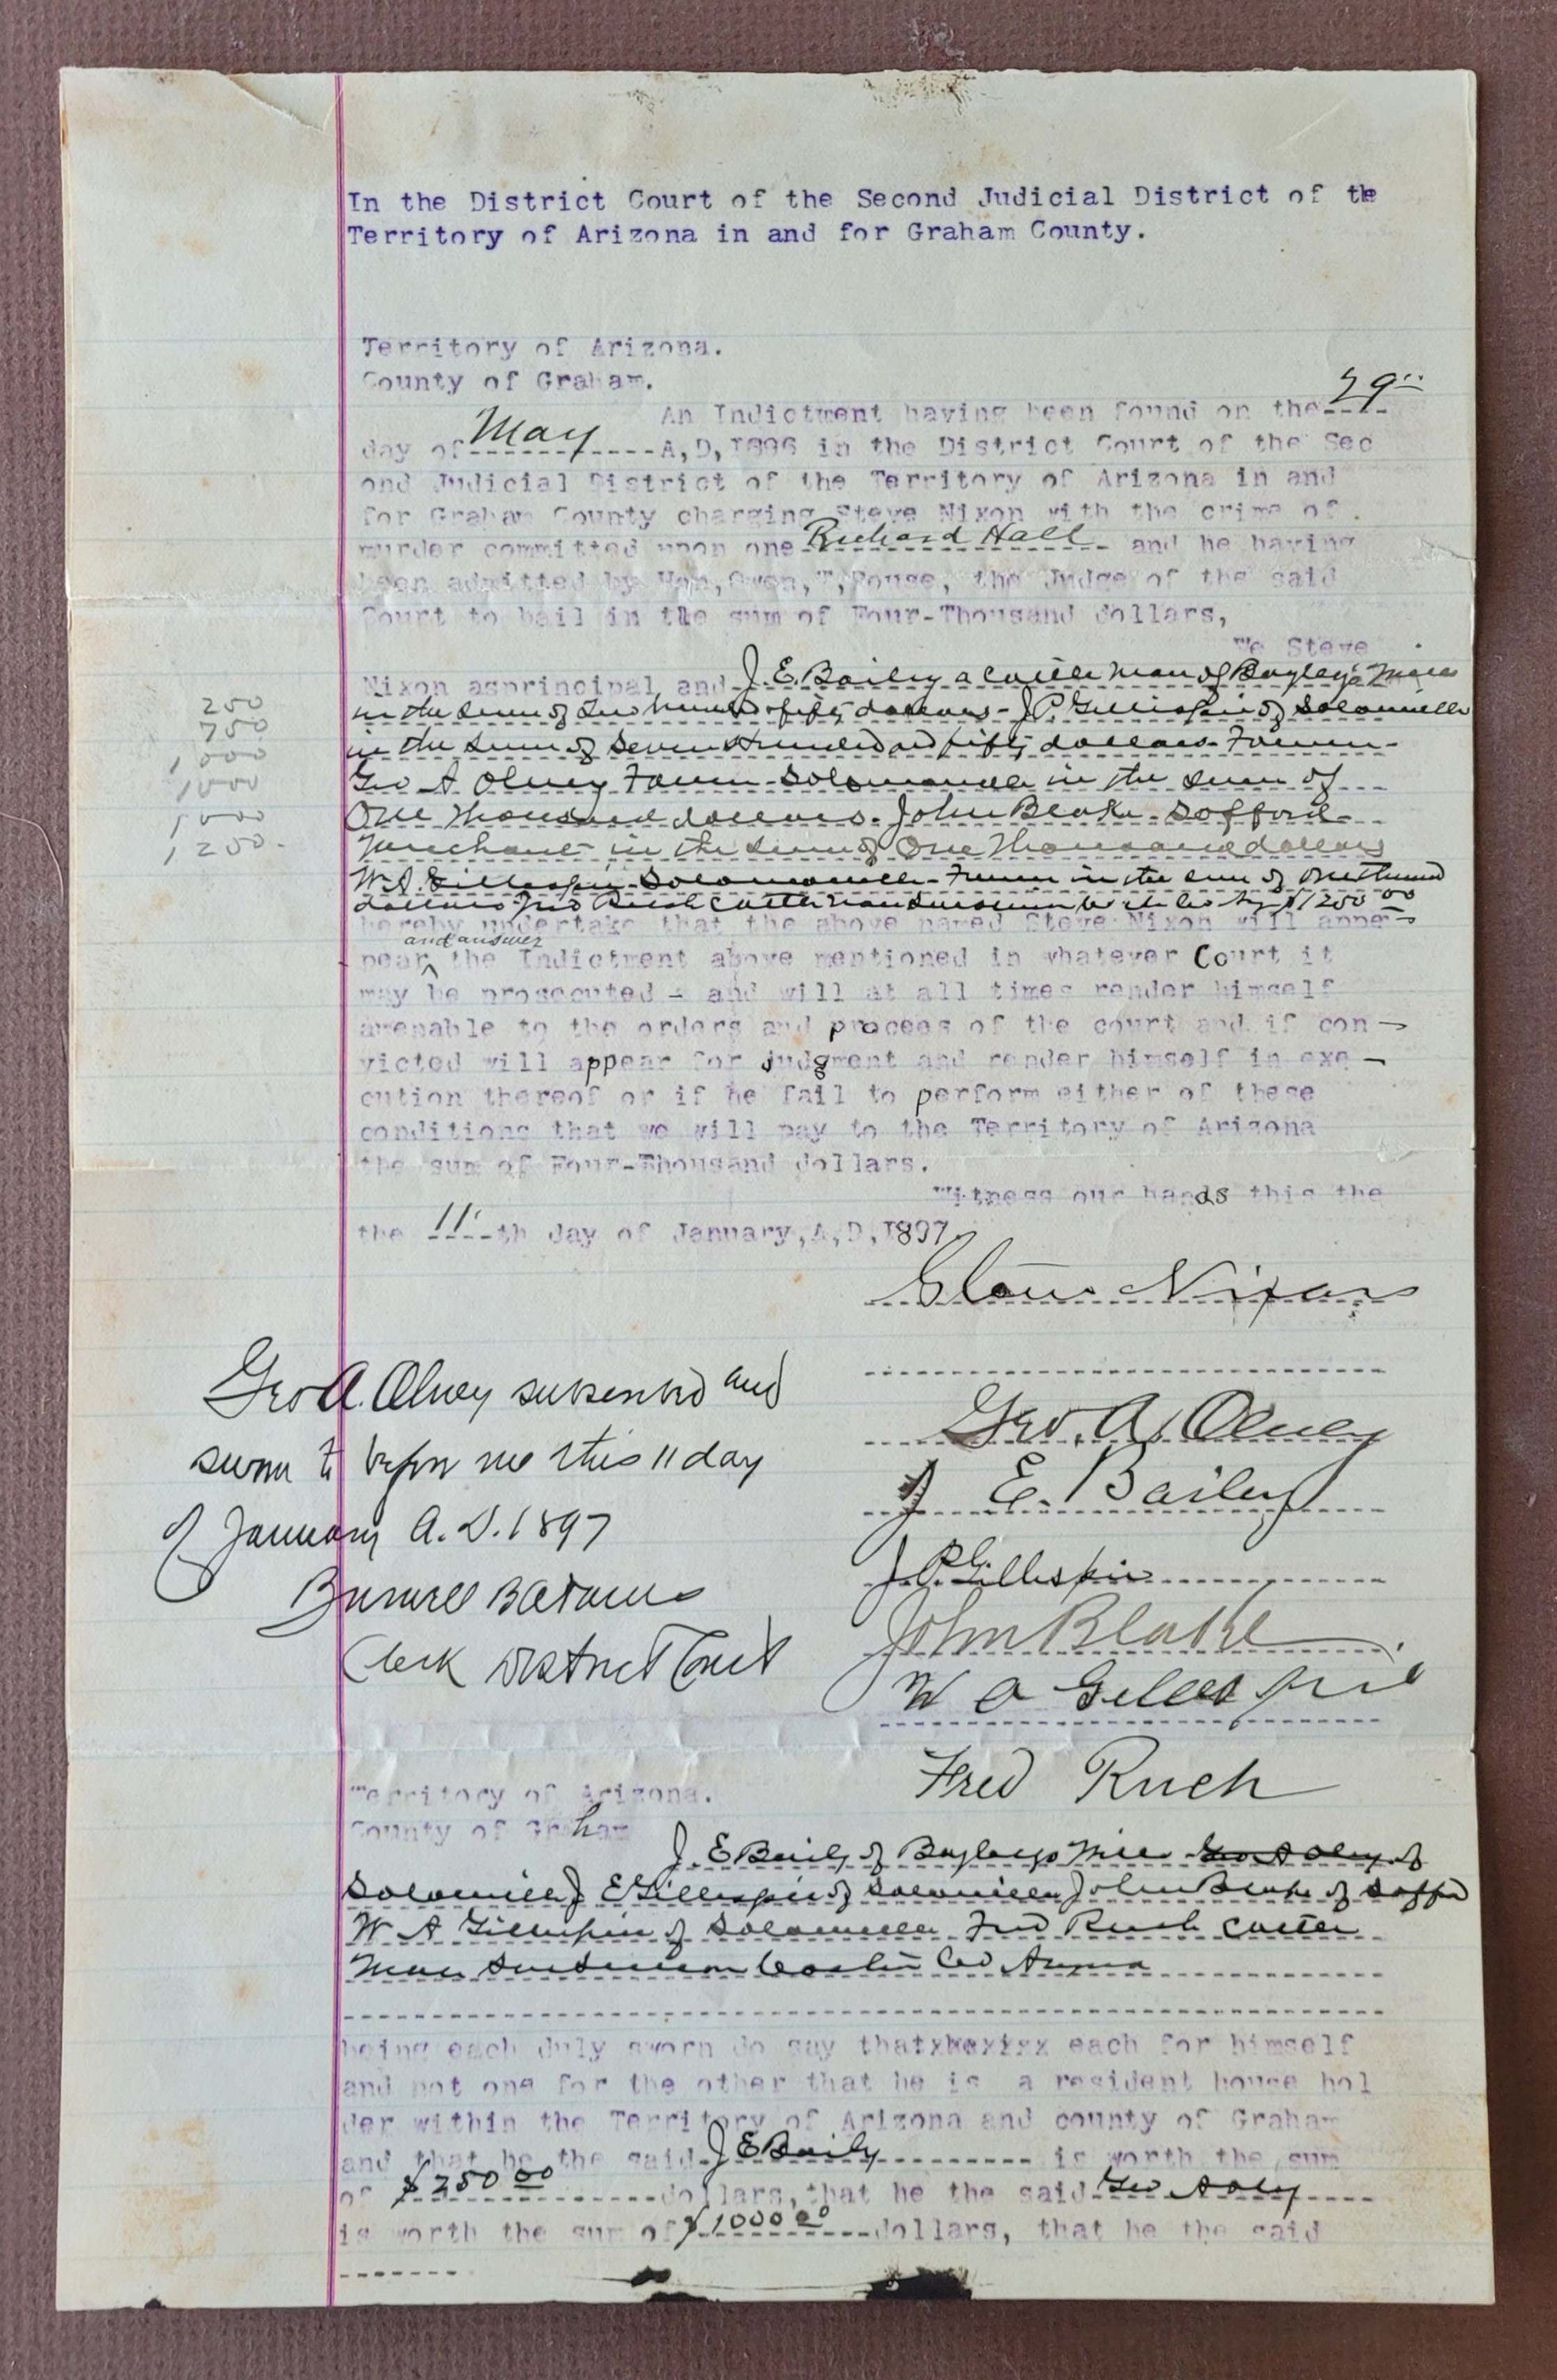 In the District Court of the Second Judicial District of the
Territory of Arizona in and for Graham County.
Territory of Arizona.
County of Graham.
An Indictment having been found on the 29"
day of May A,D,I896 in the District Court of the Sec
ond Judicial District of the Territory of Arizona in and
for Graham County charging Steve Nixon with the crime of
murder committed upon one Richard Hall and he having
been admitted by Hon,Owen,T,Rouse, the Judge of the said
Court to bail in the sum of Four-Thousand dollars,
We Steve
Nixon asprincipal and J. E. Baily a cattle man of Bayleys
in the sum of two hundred fifty dollars - J P. Gillespie of Solomonville
in the sum of Seven Hundred and fifty dollars - Farmer -
Geo A Olney Farmer - Solomonville in the sum of
One thousand dollars - John Blake - Safford -
Merchant - in the sum of One Thousand dollars
W. A. Gillespie - Solomonville - Farmer in the sum of One Thousand
dollars Fred Ruch cattle man $1250 00
250
750
1000
1000
1000
1250.
hereby undertake that the above named Steve Nixon will appe-
and answer
pear the Indictment above mentioned in whatever Court it
may be prosecuted - and will at all times render himself
amenable to the orders and process of the court and if con-
victed will appear for judgment and render himself in exe-
cution thereof or if he fail to perform either of these
conditions that we will pay to the Territory of Arizona
the sum of Four-Thousand dollars.
Witness our hands this the
the 11 th day of January,A,D,I897.
Steve Nixon
Geo. A. Olney
J E. Bailey
J. P. Gillespie
John Blake
W A Gillespie
Fred Ruch
Geo A. Olney subscribed and
sworn to before me this 11 day
of January A. D. 1897
Clerk District Court
Territory of Arizona.
County of Graham
J. E Baily of Bayleys Geo A Olney of
J E Gillespie of Solomonville John Blake of Safford
W A Gillespie of Solomonville Fred Ruch cattle
man
being each duly sworn do say that each for himself
and not one for the other that he is a resident house hol
der within the Territory of Arizona and county of Graham
and that he the said J E Baily is worth the sum
of $250 00 dollars,that he the said Geo A Olney
is worth the sum of $1000 00 dollars, that he the said